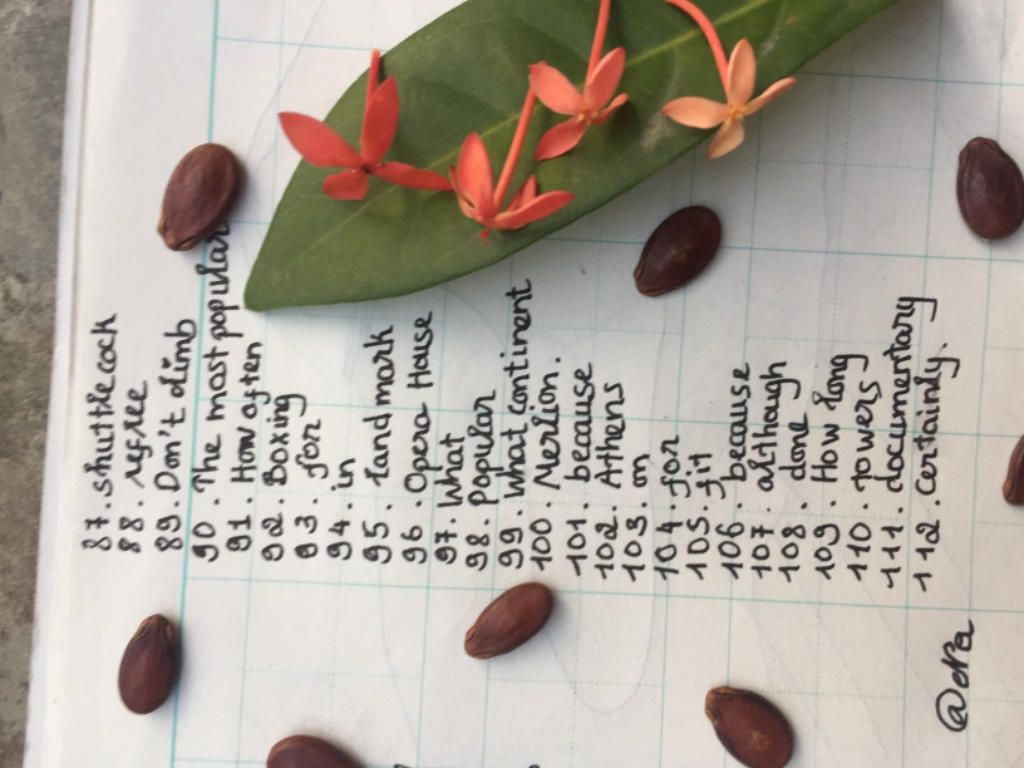 87. shuttlecock
88. refree
89. Don't climb
90. The most popular
91. How often
92. Boxing
93. for
94. in
95. land mark
96. Opera House
97. What
98. Popular
99. What continent
100. Merlion.
101. because
102. Athens
103. on
104. for
105. fit
106. because
107. although
108. done
109. How long
110. towers
111. documentary
112. Certainly.